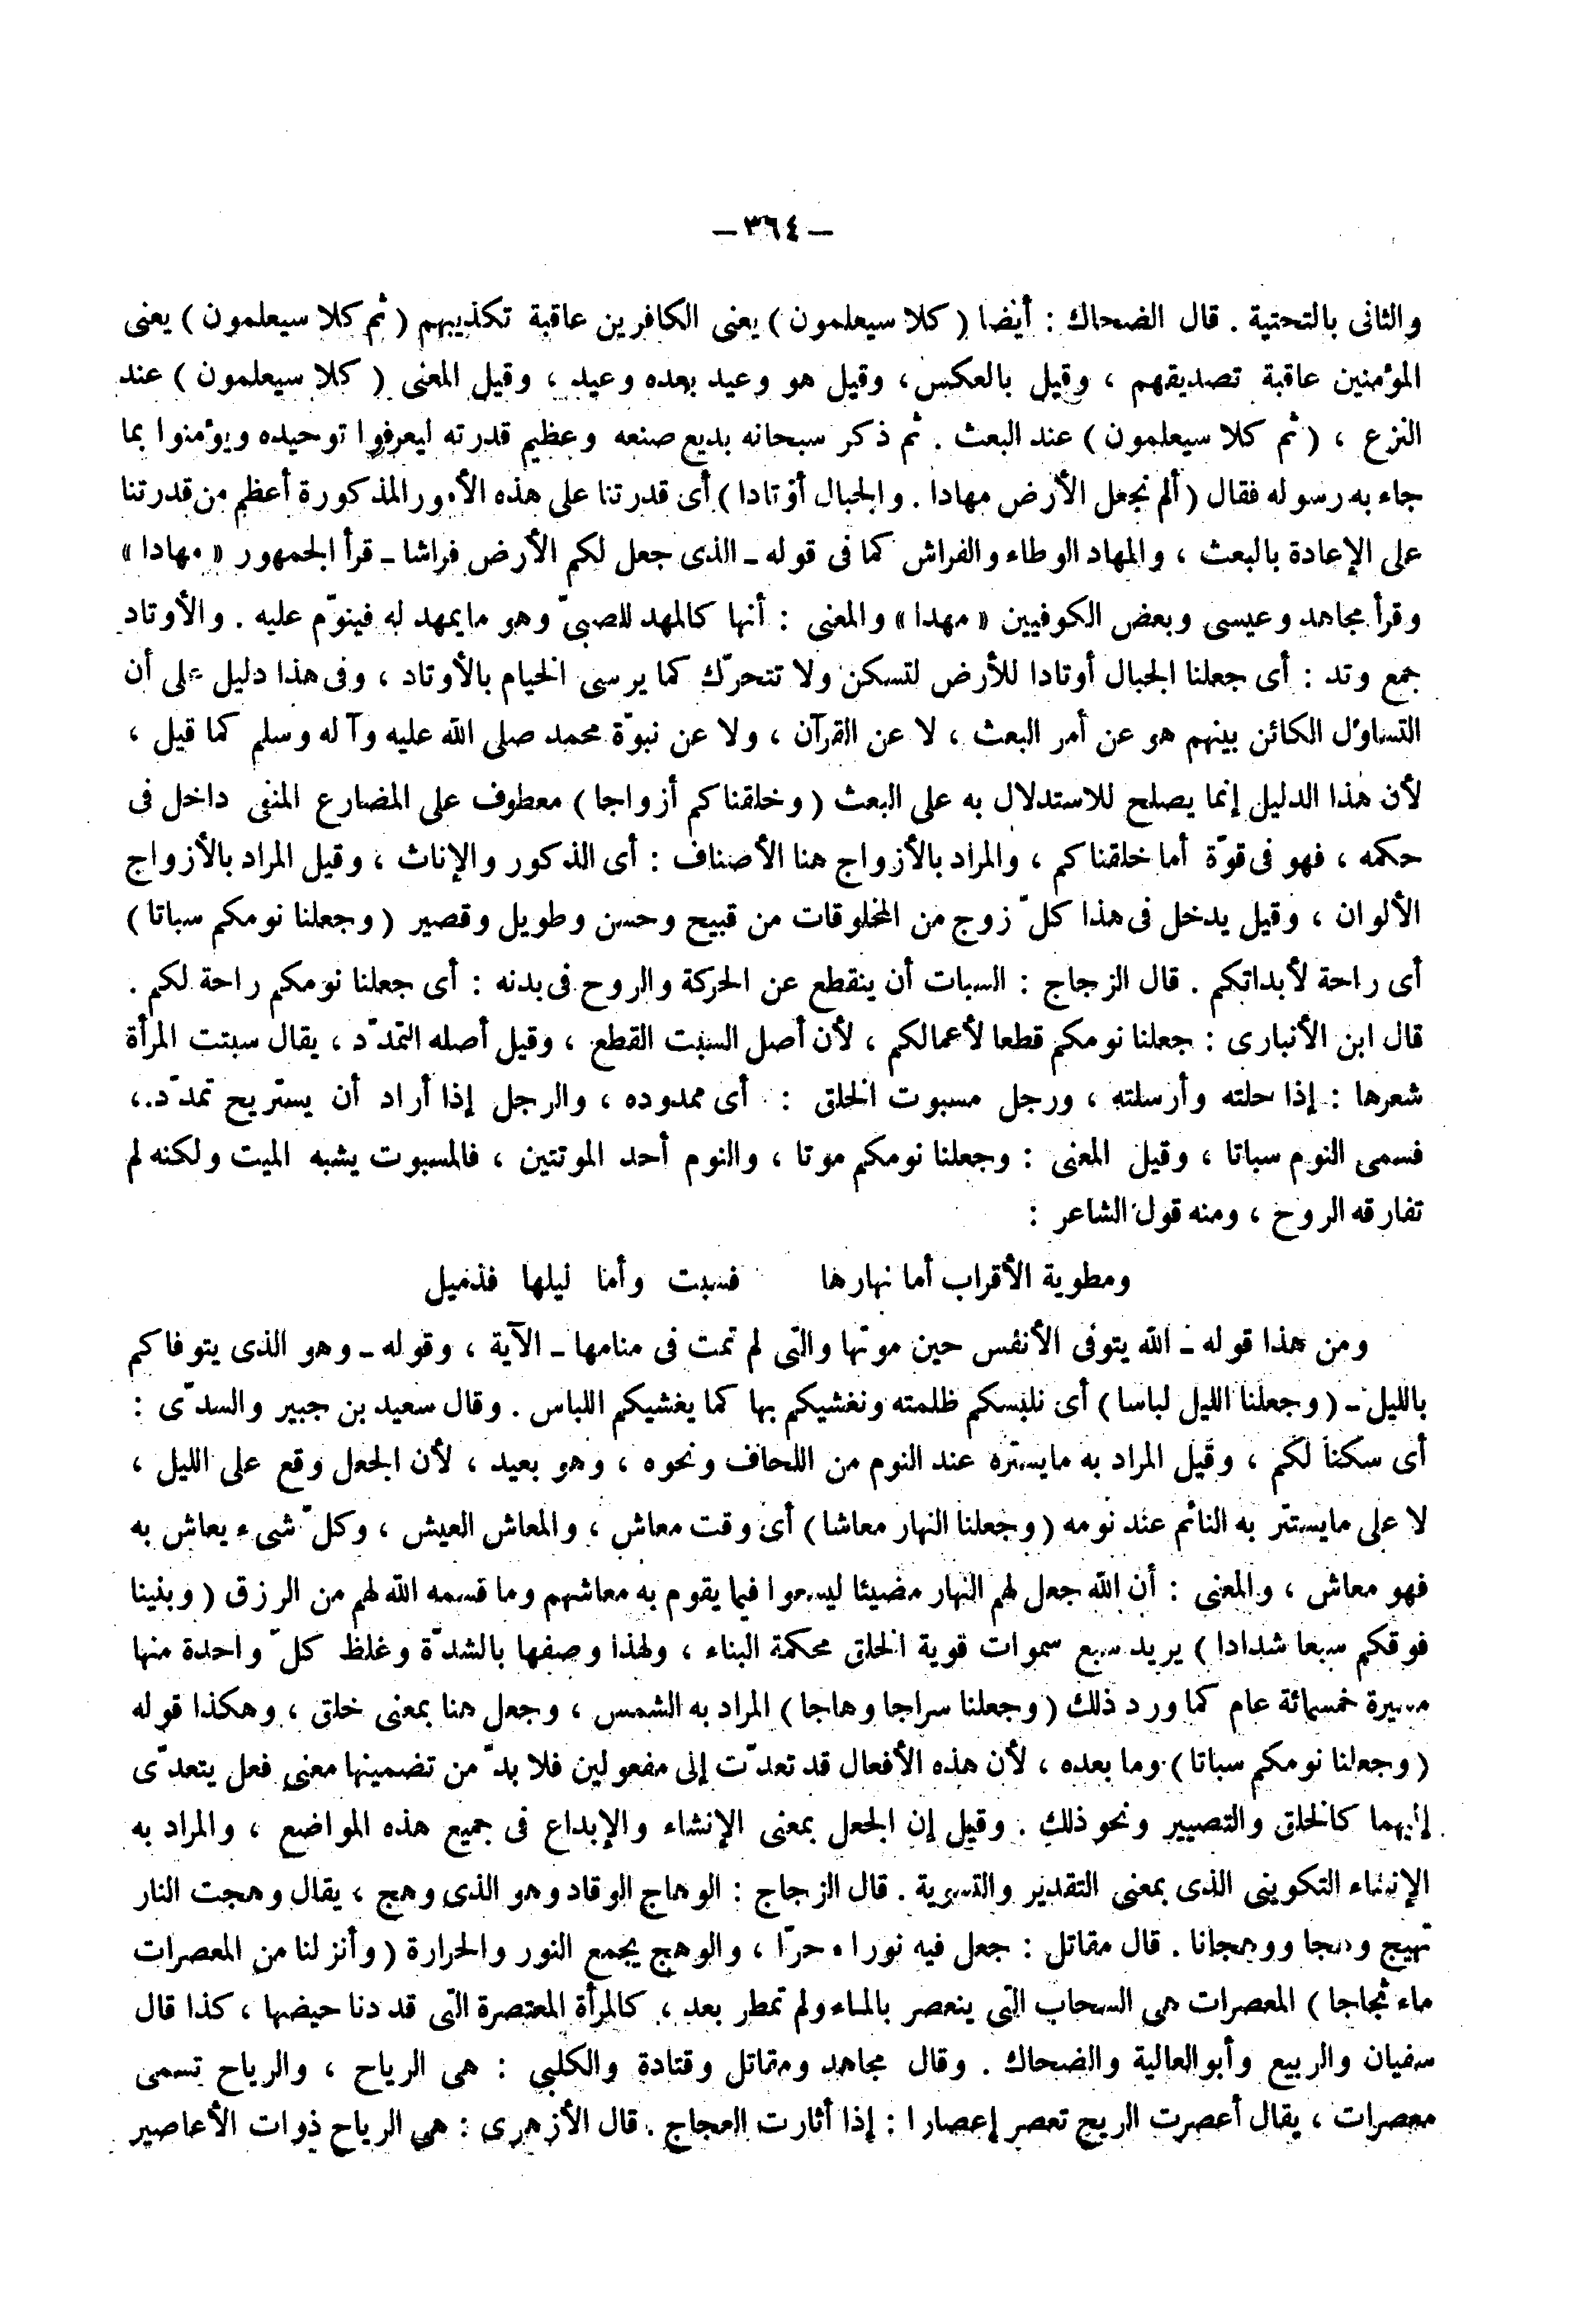 — ٣٦٤ —
والثانى بالتحتية . قال الضحاك : أيضا ( كلا سيعلمون ) يعنى الكافرين عاقبة تكذيبهم ( ثم كلا سيعلمون ) يعنى
المؤمنين عاقبة تصديقهم ، وقيل بالعكس ، وقيل هو وعيد بعده وعيد ، وقيل المعنى ( كلا سيعلمون ) عند
النزع ، ( ثم كلا سيعلمون ) عند البعث . ثم ذكر سبحانه بديع صنعه وعظيم قدرته ليعرفوا توحيده ويؤمنوا بما
جاء به رسوله فقال ( ألم نجعل الأرض مهادا . والجبال أوتادا ) أى قدرتنا على هذه الأمور المذكورة أعظم من قدرتنا
على الإعادة بالبعث ، والمهاد الوطاء والفراش كما فى قوله ـ الذى جعل لكم الأرض فراشا ـ قرأ الجمهور « مهادا »
وقرأ مجاهد وعيسى وبعض الكوفيين « مهدا » والمعنى : أنها كالمهد للصبىّ وهو مايمهد له فينوّم عليه . والأوتاد
جمع وتد : أى جعلنا الجبال أوتادا للأرض لتسكن ولا تتحرّك كما يرسى الخيام بالأوتاد ، وفى هذا دليل على أن
التساؤل الكائن بينهم هو عن أمر البعث ، لا عن القرآن ، ولا عن نبوّة محمد صلى الله عليه وآله وسلم كما قيل ،
لأن هذا الدليل إنما يصلح للاستدلال به على البعث ( وخلقناكم أزواجا ) معطوف على المضارع المنفى داخل فى
حكمه ، فهو فى قوّة أما خلقناكم ، والمراد بالأزواج هنا الأصناف : أى الذكور والإناث ، وقيل المراد بالأزواج
الألوان ، وقيل يدخل فى هذا كلّ زوج من المخلوقات من قبيح وحسن وطويل وقصير ( وجعلنا نومكم سباتا )
أى راحة لأبدانكم . قال الزجاج : السبات أن ينقطع عن الحركة والروح فى بدنه : أى جعلنا نومكم راحة لكم .
قال ابن الأنبارى : جعلنا نومكم قطعا لأعمالكم ، لأن أصل السبت القطع ، وقيل أصله التمدّد ، يقال سبتت المرأة
شعرها : إذا حلته وأرسلته ، ورجل مسبوت الخلق : أى ممدوده ، والرجل إذا أراد أن يستريح تمدّد ،
فسمى النوم سباتا ، وقيل المعنى : وجعلنا نومكم موتا ، والنوم أحد الموتتين ، فالمسبوت يشبه الميت ولكنه لم
تفارقه الروح ، ومنه قول الشاعر :
ومطوية الأقراب أما نهارها فسبت وأما ليلها فذميل
ومن هذا قوله ـ الله يتوفى الأنفس حين موتها والتى لم تمت فى منامها ـ الآية ، وقوله ـ وهو الذى يتوفاكم
بالليل ـ ( وجعلنا الليل لباسا ) أى نلبسكم ظلمته ونغشيكم بها كما يغشيكم اللباس . وقال سعيد بن جبير والسدّى :
أى سكنا لكم ، وقيل المراد به مايستره عند النوم من اللحاف ونحوه ، وهو بعيد ، لأن الجعل وقع على الليل ،
لا على مايستتر به النائم عند نومه ( وجعلنا النهار معاشا ) أى وقت معاش ، والمعاش العيش ، وكلّ شىء يعاش به
فهو معاش ، والمعنى : أن الله جعل لهم النهار مضيئا ليسعوا فيما يقوم به معاشهم وما قسمه الله لهم من الرزق ( وبنينا
فوقكم سبعا شدادا ) يريد سبع سموات قوية الخلق محكمة البناء ، ولهذا وصفها بالشدّة وغلظ كلّ واحدة منها
مسيرة خمسمائة عام كما ورد ذلك ( وجعلنا سراجا وهاجا ) المراد به الشمس ، وجعل هنا بمعنى خلق ، وهكذا قوله
( وجعلنا نومكم سباتا ) وما بعده ، لأن هذه الأفعال قد تعدّت إلى مفعولين فلا بدّ من تضمينها معنى فعل يتعدّى
إليهما كالخلق والتصيير ونحو ذلك . وقيل إن الجعل بمعنى الإنشاء والإبداع فى جميع هذه المواضع ، والمراد به
الإنشاء التكوينى الذى بمعنى التقدير والتسوية . قال الزجاج : الوهاج الوقاد وهو الذى وهج ، يقال وهجت النار
تهيج وهجا ووهجانا . قال مقاتل : جعل فيه نورا وحرّا ، والوهج يجمع النور والحرارة ( وأنزلنا من المعصرات
ماء ثجاجا ) المعصرات هى السحاب التى ينعصر بالماء ولم تمطر بعد ، كالمرأة المعتصرة التى قد دنا حيضها ، كذا قال
سفيان والربيع وأبو العالية والضحاك . وقال مجاهد ومقاتل وقتادة والكلبى : هى الرياح ، والرياح تسمى
معصرات ، يقال أعصرت الريح تعصر إعصارا : إذا أثارت العجاج . قال الأزهرى : هى الرياح ذوات الأعاصير